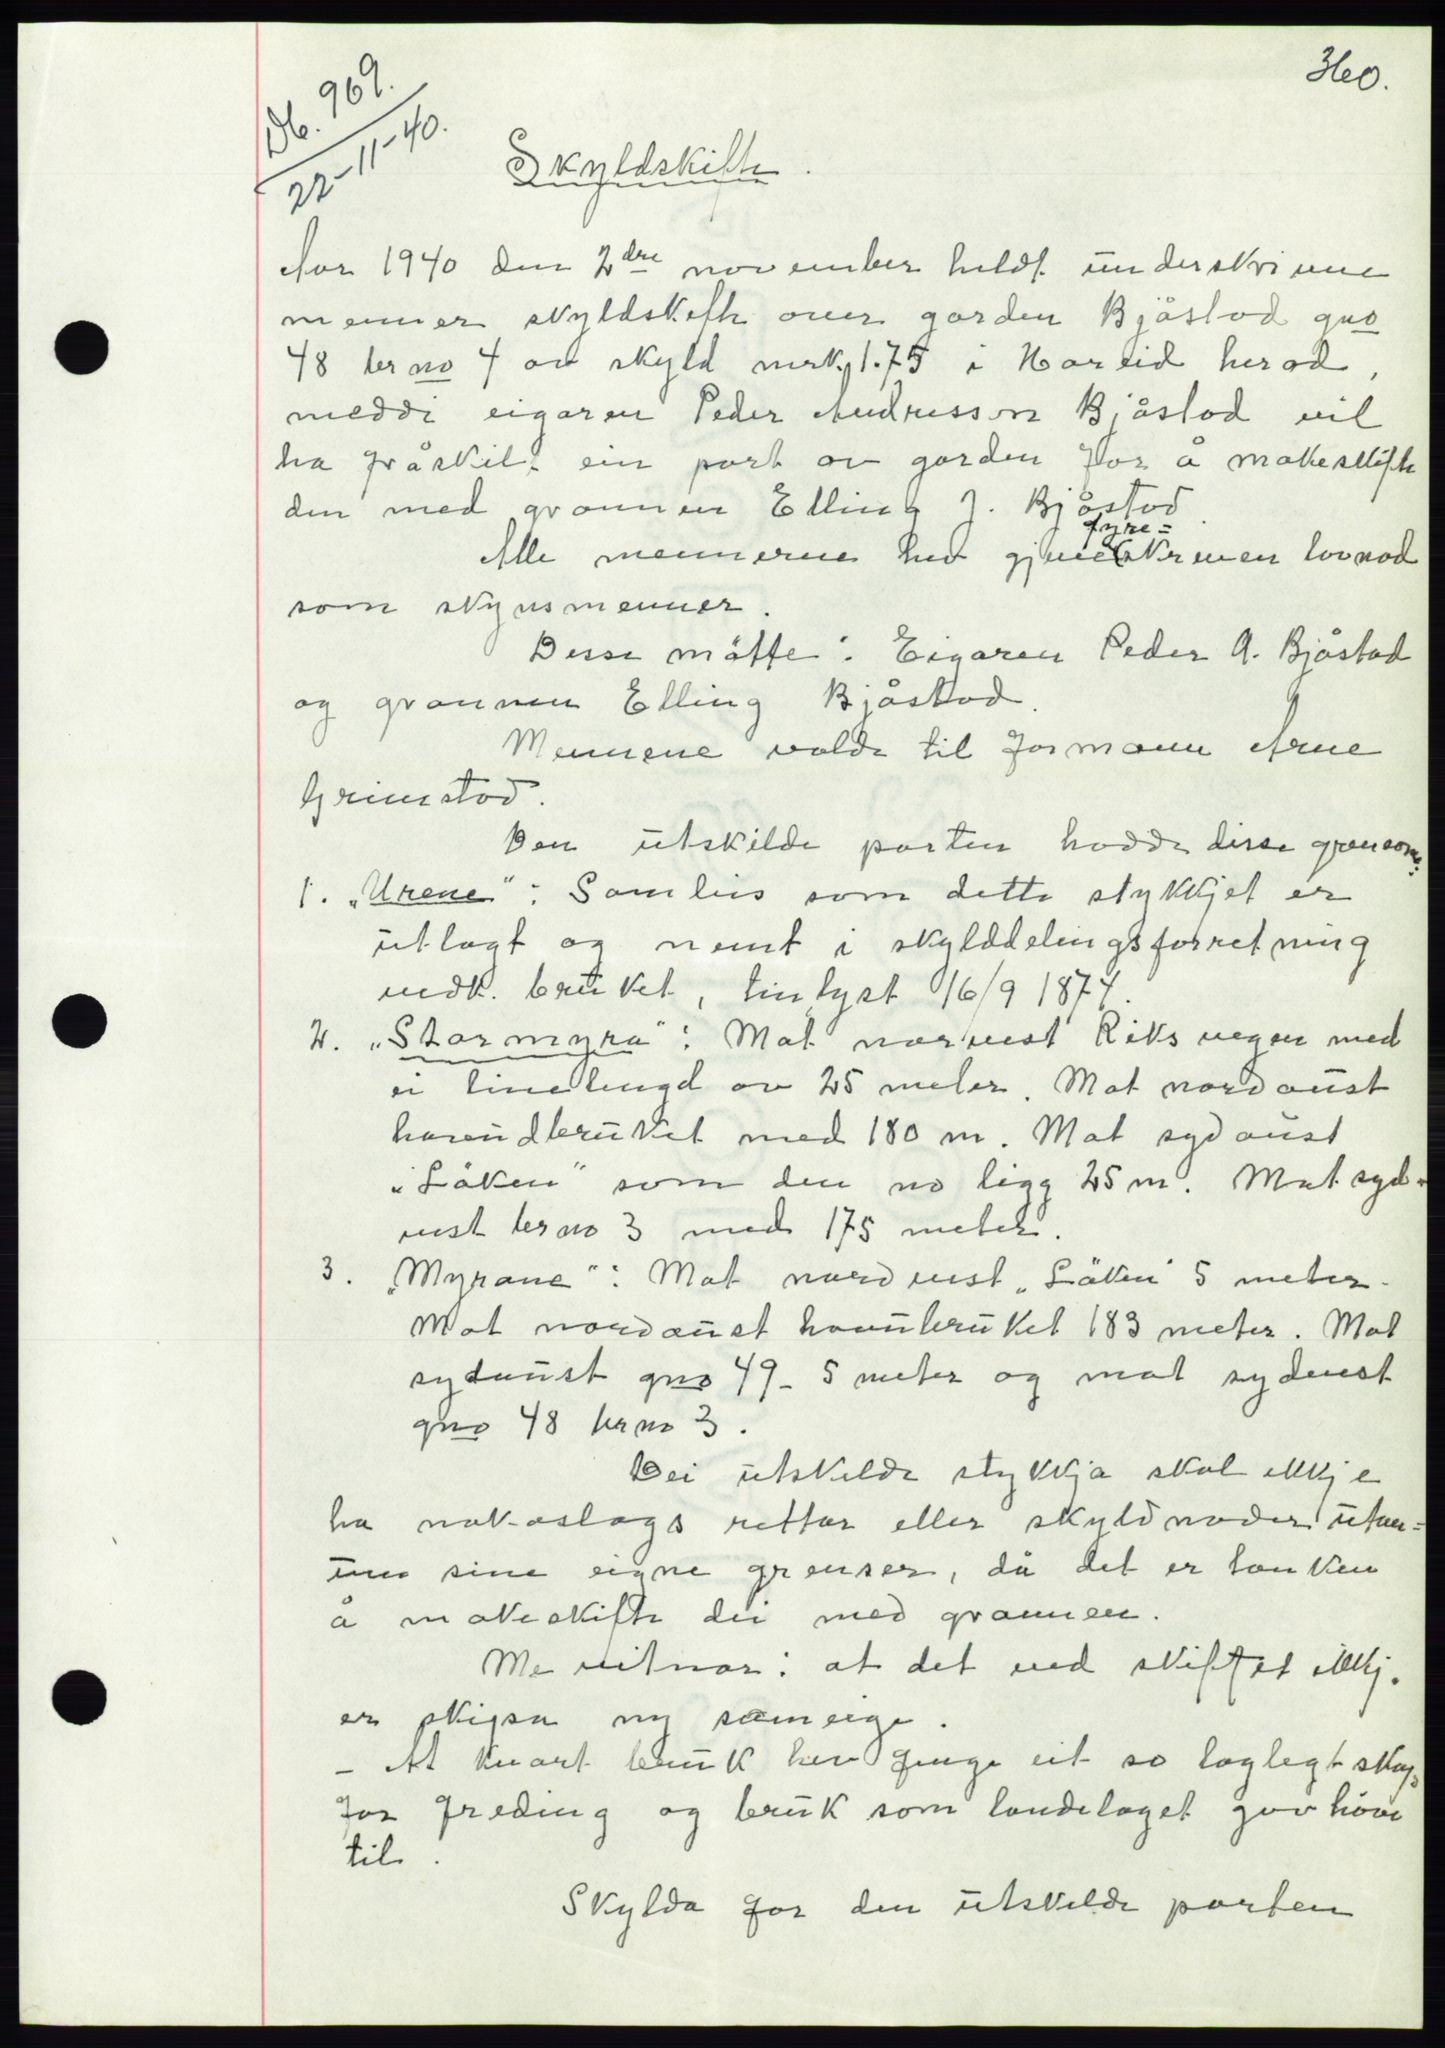 360.
Db. 969.
22-11-40.
Skyldskifte.
Aar 1940 den 2dre november heldt underskrivne
menner skyldskifte over garden Bjåstad gno
48 br no 4 av skyld mrk. 1.75 i Hareid herad,
meddi eigaren Peder Andresson Bjåstad vil
ha fråskilt ein part av garden for å makeskifte
den med grannen Elling J. Bjåstad.
Alle mennerne hev gjeve fyre=
skreven lovnad
som skynsmenner.
Desse møtte: Eigaren Peder A. Bjåstad
og grannen Elling Bjåstad.
Mennene valde til formann Arne
Grimstad.
Den utskilde parten hadde disse grensene:
1. „Urene": Somleis som dette stykkjet er
utlagt og nemt i skylddelingsforretning
vedk. bruket, tinlyst 16/9 1874.
2. „Stormyra": Mot norvest Riksvegen med
ei linelengd av 25 meter. Mot nordaust
hovudbruket med 180 m. Mot sydaust
„Løken" som den no ligg 25 m. Mot syd-
vest br no 3 med 175 meter.
3. „Myrane": Mot nordvest „Løken" 5 meter.
Mot nordaust hovubruket 183 meter. Mot
sydaust gno 49 - 5 meter og mot sydvest
gno 48 br no 3.
Dei utskilde stykkja skal ikkje
ha nokoslags rettar eller skyldnader utan-
um sine eigne grenser, då det er tanken
å makeskifte dei med grannen.
Me vitnar: at det ved skiftet ikkj.
er skipa ny sameige.
- At kvart bruk hev fenge eit so laglegt skap
for freding og bruk som landelaget gav høve
til.
Skylda for den utskilde parten